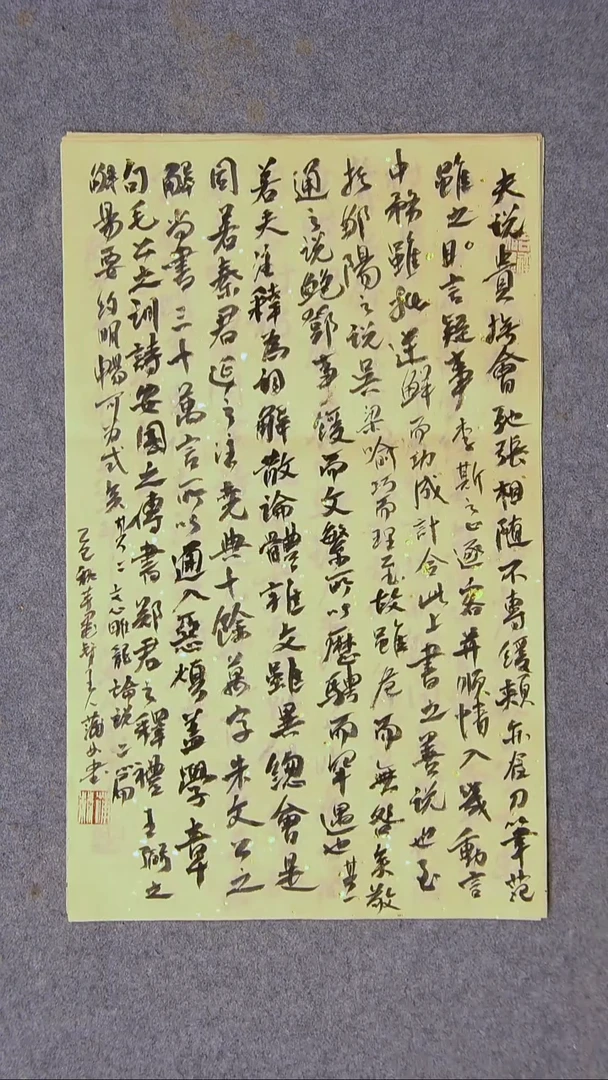 夫说贵抚会弛张相随不专缓颊亦在刀笔范
雎之言疑事李斯之止逐客并顺情入机动言
中務雖批逆鲜而功成計合此上書之善说也至
於鄒陽之说吴梁喻巧而理至故雖危而無咎矣敬
通之说鲍鄧事缓而文繁所以歷騁而罕遇也
若夫注釋為詞解散論體雜文雖異總會是
同若秦君延之注堯典十餘萬字朱文公之
解尚書三十萬言所以通人惡煩羞學章
句毛公之训詩安國之傳書鄭君之釋禮王弼之
解易要约明暢可为式矣
文心雕龍論说二篇
乙巳秋
書